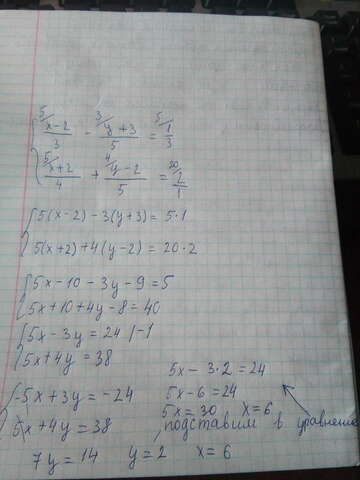 { ⁵/ (x-2)/3 - ³/ (y+3)/5 = ⁵/ 1/3
{ ⁵/ (x+2)/4 + ⁴/ (y-2)/5 = ²⁰/ 2/1
{ 5(x-2) - 3(y+3) = 5·1
5(x+2) + 4(y-2) = 20·2
{ 5x - 10 - 3y - 9 = 5
5x + 10 + 4y - 8 = 40
{ 5x - 3y = 24 /-1
5x + 4y = 38
{ -5x + 3y = -24
5x + 4y = 38
7y = 14 y = 2 x = 6
5x - 3·2 = 24
5x - 6 = 24
5x = 30 x = 6
подставим в уравнение